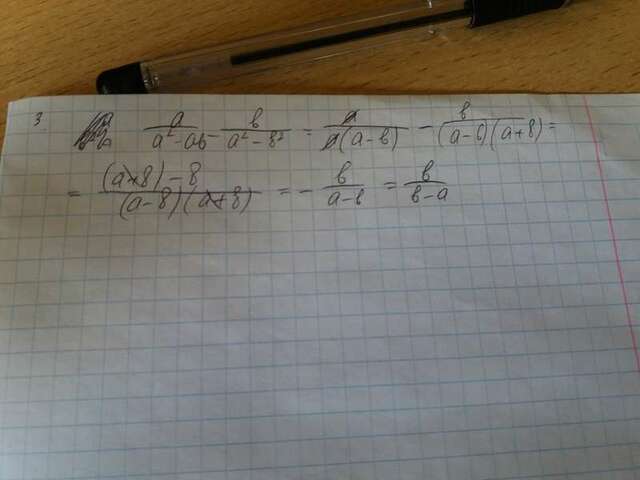 3.
a/(a²-ab) - b/(a²-b²) = a/(a(a-b)) - b/((a-b)(a+b)) =
= ((a+b)-b)/((a-b)(a+b)) = - b/(a-b) = b/(b-a)